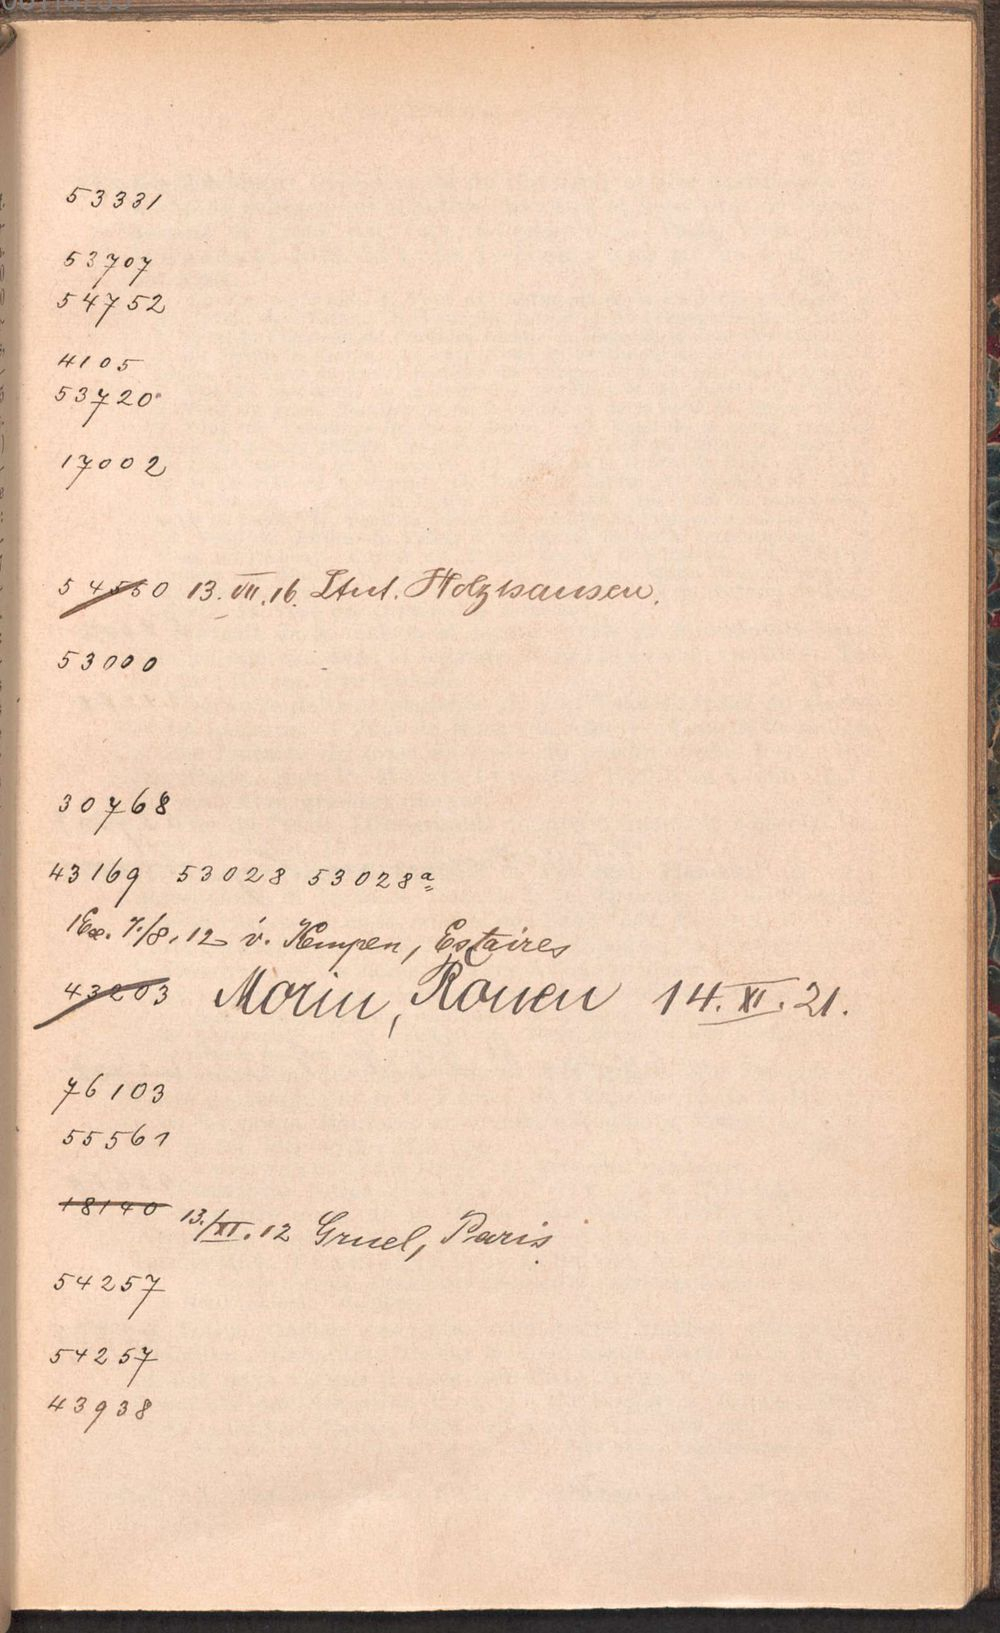 53331
53707
54752
4105
53720
17002
54550 13. VII. 16. Ltnt. Holzhausen.
53000
30768
43169 53028 53028a
1 Ex. 7./8. 12 v. Kempen, Estaires
43203 Morin, Rouen 14. XI. 21.
76103
55561
18140 13./XI. 12 Gruel, Paris
54257
54257
43938